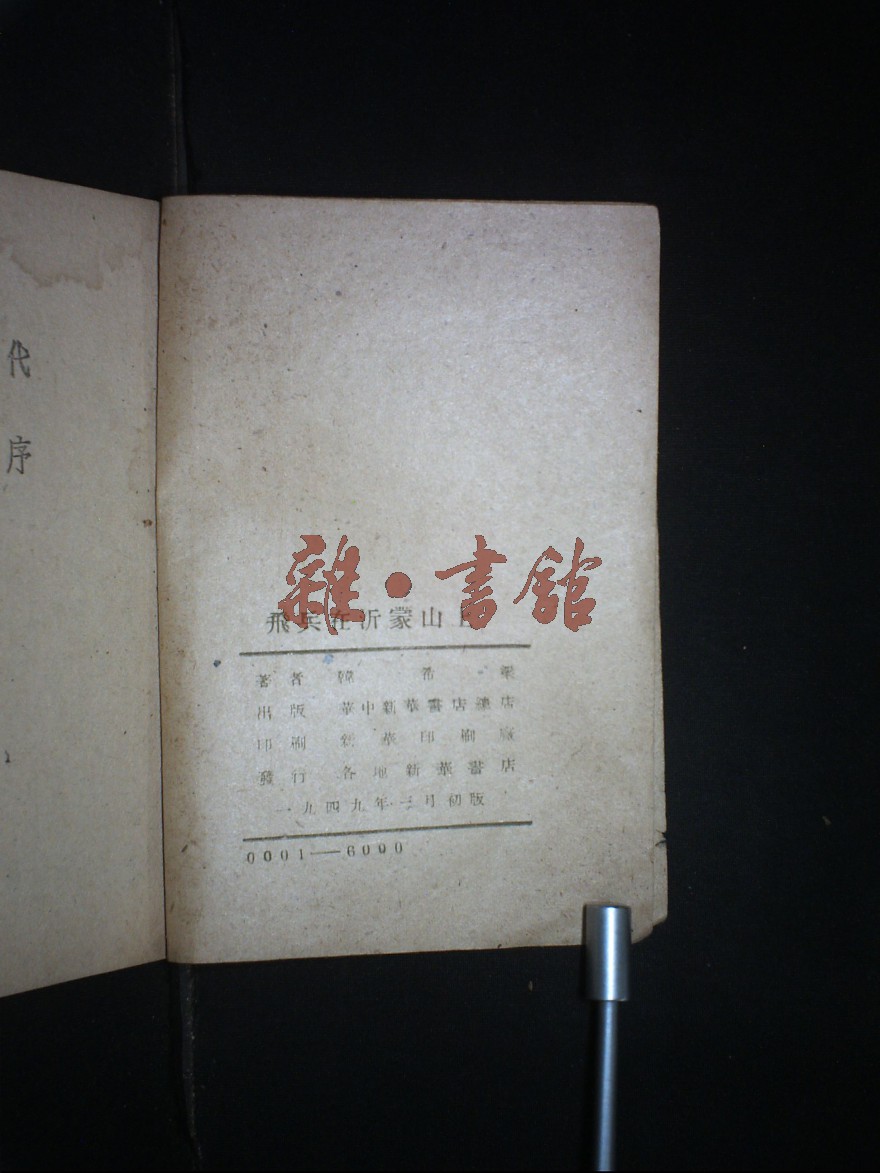 代序
雜·書館
飛兵在沂蒙山上
著者 韓希梁
出版 華中新華書店總店
印刷 新華印刷廠
發行 各地新華書店
一九四九年三月初版
0001—6000